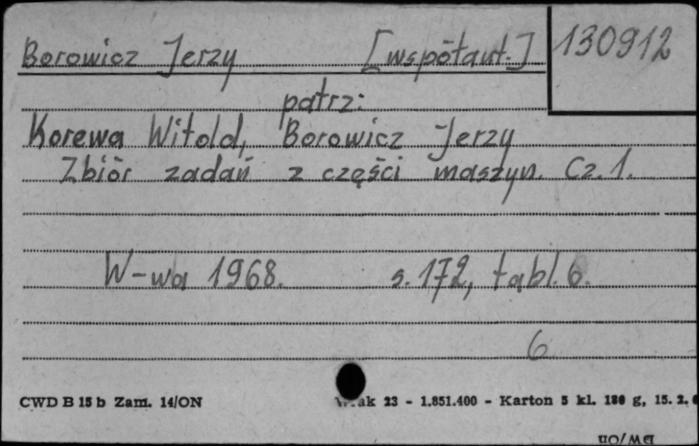 Borowicz Jerzy [współaut.] 130912
patrz:
Korewa Witold, Borowicz Jerzy
Zbiór zadań z części maszyn. Cz. 1.
W-wa 1968. s. 172, tabl. 6.
6
CWD B 15 b Zam. 14/ON ak 23 - 1.851.400 - Karton 5 kl. 180 g, 15. 2. 6